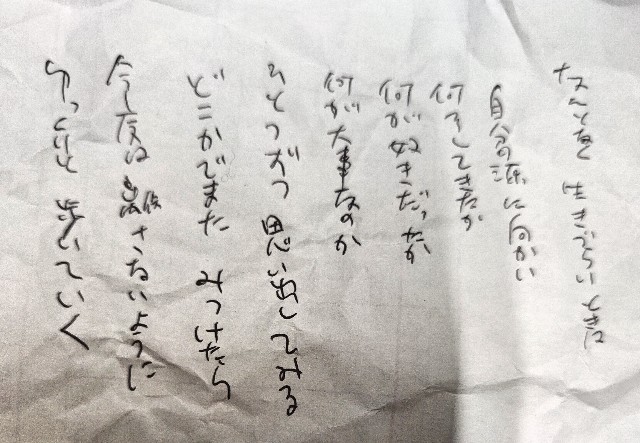 なんとなく 生きづらい ときは
自分の源に向かい
何をしてきたか
何が好きだったか
何が大事なのか
ひとつずつ 思い出してみる
どこかでまた みつけたら
今度は さないように
ゆっくりと 歩いていく